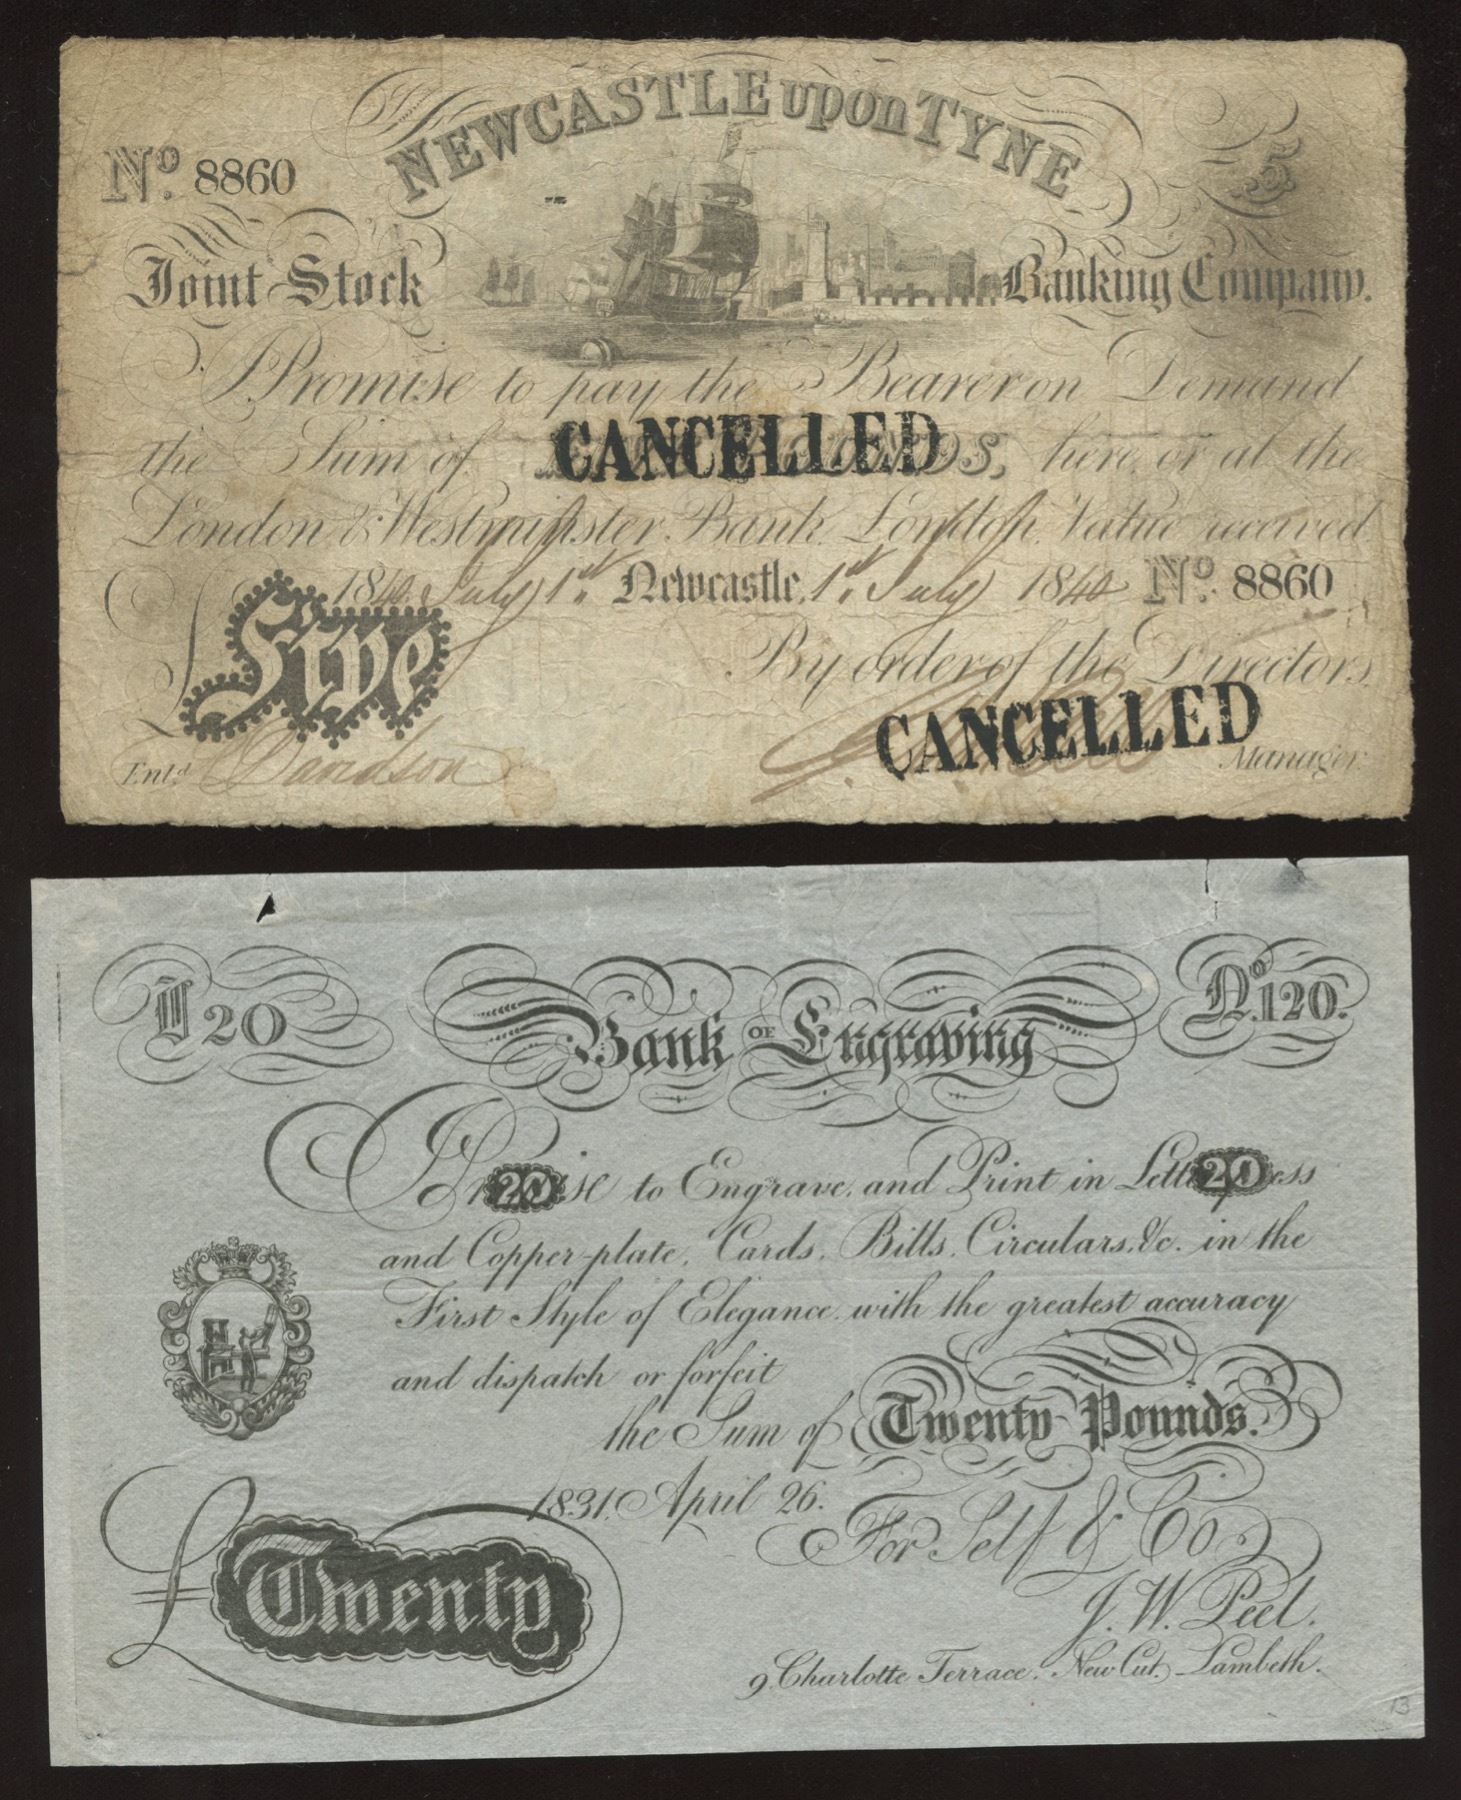 NEWCASTLE upon TYNE
No. 8860
5
Joint Stock Banking Company.
I Promise to pay the Bearer on Demand
the Sum of CANCELLED here or at the
London & Westminster Bank London Value received
1840 July 1st Newcastle, 1st July 1840 No. 8860
£Five
By order of the Directors,
CANCELLED
Entd Davidson Manager
£20 Bank OF Engraving No. 120.
I Promise to Engrave, and Print in Letterpress
20 20
and Copper-plate, Cards, Bills, Circulars, &c. in the
First Style of Elegance with the greatest accuracy
and dispatch or forfeit
the Sum of Twenty Pounds.
1831. April 26.
For Self & Co.
£Twenty
J. W. Peel.
9, Charlotte Terrace, New Cut, Lambeth.
13